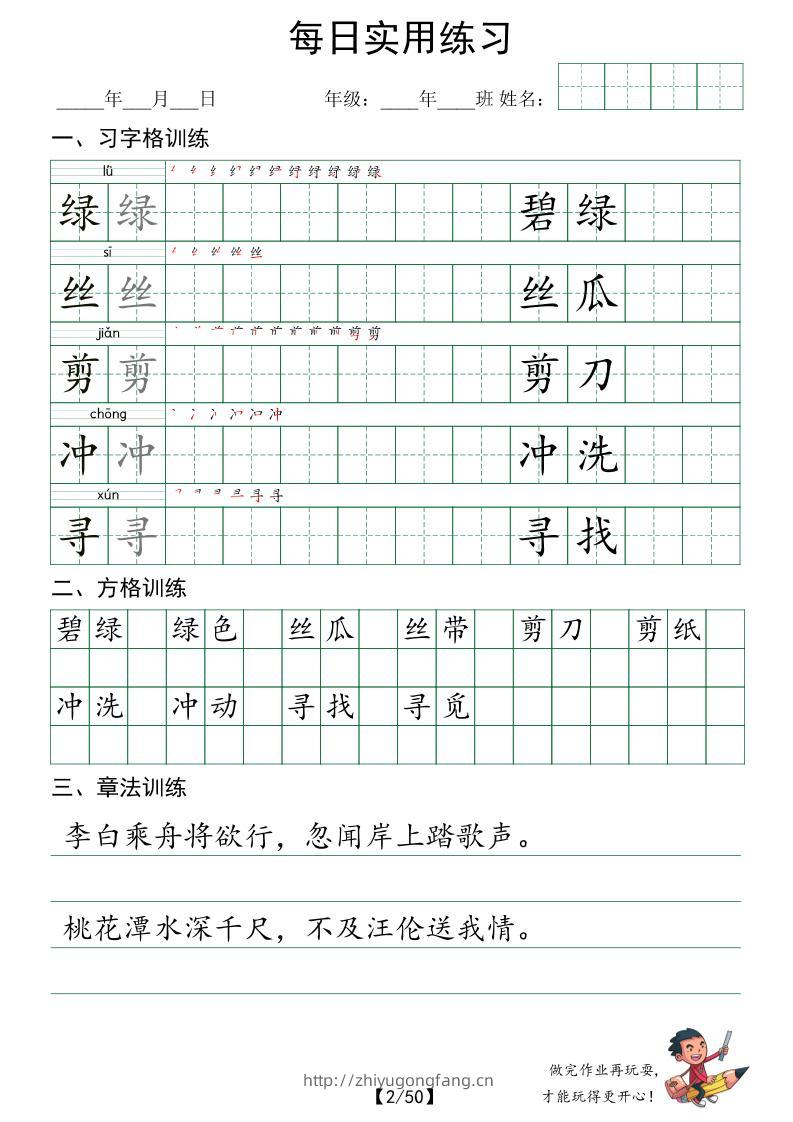 每日实用练习
_____年___月___日 年级：____年____班 姓名：
一、习字格训练
lǜ
绿 绿 碧 绿
sī
丝 丝 丝 瓜
jiǎn
剪 剪 剪 刀
chōng
冲 冲 冲 洗
xún
寻 寻 寻 找
二、方格训练
碧绿 绿色 丝瓜 丝带 剪刀 剪纸
冲洗 冲动 寻找 寻觅
三、章法训练
李白乘舟将欲行，忽闻岸上踏歌声。
桃花潭水深千尺，不及汪伦送我情。
做完作业再玩耍，
才能玩得更开心！
http://zhiyugongfang.cn
【2/50】